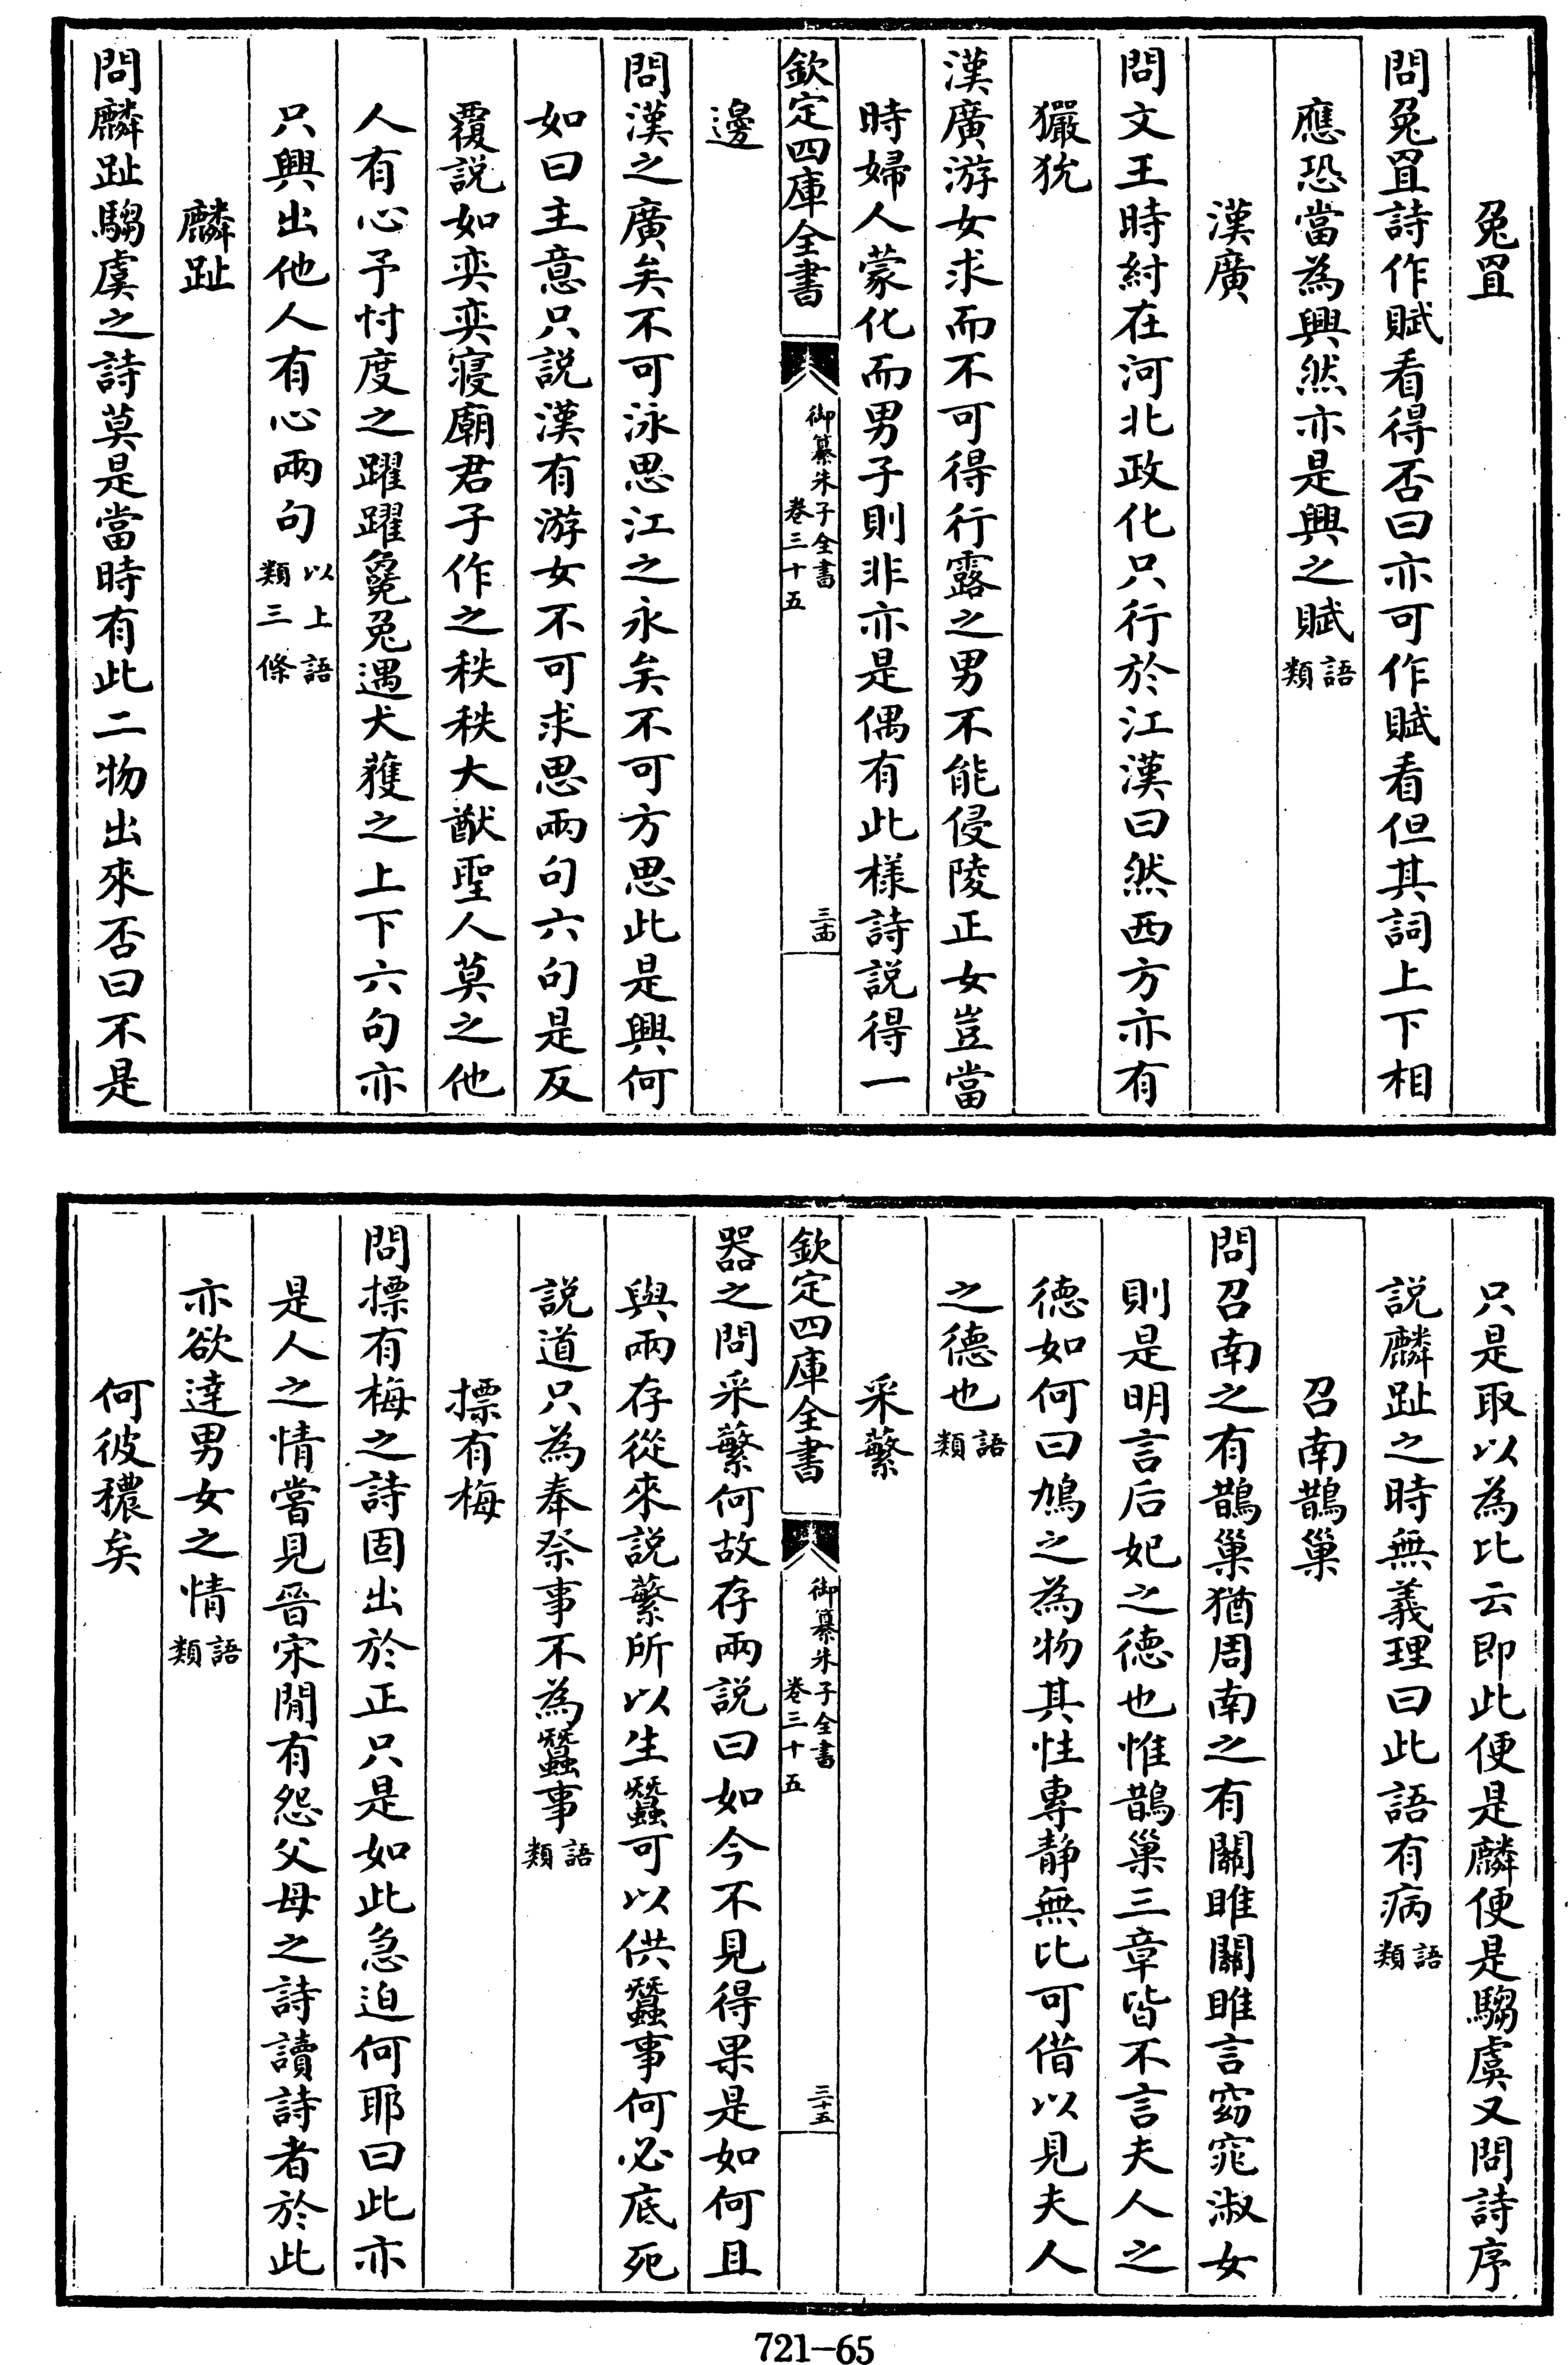 兔罝
問兔罝詩作賦看得否曰亦可作賦看但其詞上下相
應恐當為興然亦是興之賦語類
漢廣
問文王時紂在河北政化只行於江漢曰然西方亦有
玁狁
漢廣游女求而不可得行露之男不能侵陵正女豈當
時婦人蒙化而男子則非亦是偶有此様詩説得一
欽定四庫全書
御纂朱子全書
卷三十五
三十四
邊
問漢之廣矣不可泳思江之永矣不可方思此是興何
如曰主意只説漢有游女不可求思兩句六句是反
覆説如奕奕寢廟君子作之秩秩大猷聖人莫之他
人有心予忖度之躍躍毚兔遇犬獲之上下六句亦
只興出他人有心兩句以上語類三條
麟趾
問麟趾騶虞之詩莫是當時有此二物出來否曰不是
只是取以為比云即此便是麟便是騶虞又問詩序
説麟趾之時無義理曰此語有病語類
召南鵲巢
問召南之有鵲巢猶周南之有關雎關雎言窈窕淑女
則是明言后妃之徳也惟鵲巢三章皆不言夫人之
徳如何曰鳩之為物其性專静無比可借以見夫人
之徳也語類
采蘩
欽定四庫全書
御纂朱子全書
卷三十五
三十五
器之問采蘩何故存兩説曰如今不見得果是如何且
與兩存從來説蘩所以生蠶可以供蠶事何必底死
説道只為奉祭事不為蠶事語類
摽有梅
問摽有梅之詩固出於正只是如此急迫何耶曰此亦
是人之情嘗見晉宋閒有怨父母之詩讀詩者於此
亦欲達男女之情語類
何彼穠矣
721-65